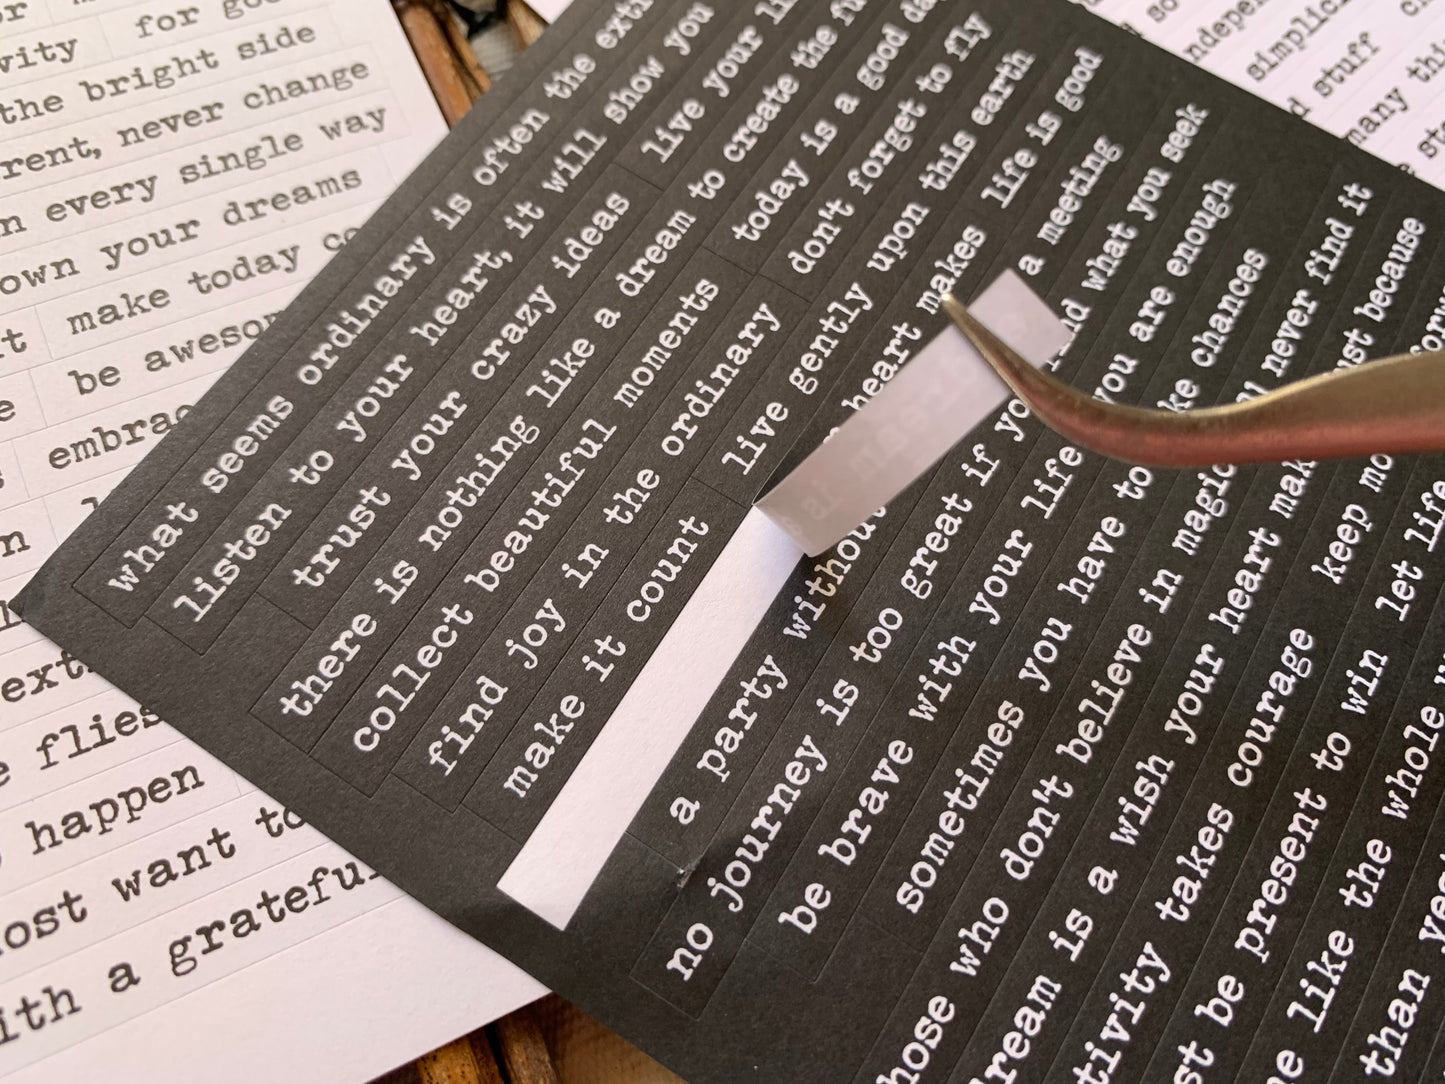 vity for go
the bright side
rent, never change
n every single way
own your dreams
t make today co
be awesom
embrac
n
ext
e flies
happen
ost want to
ith a grateful
what seems ordinary is often the extr
listen to your heart, it will show you
trust your crazy ideas live your li
there is nothing like a dream to create the fu
collect beautiful moments today is a good da
find joy in the ordinary don't forget to fly
make it count live gently upon this earth
heart makes life is good
a party without a meeting
no journey is too great if yo nd what you seek
be brave with your life you are enough
sometimes you have to ke chances
hose who don't believe in magic l never find it
dream is a wish your heart mak ust because
tivity takes courage keep mo
st be present to win let life
e like the whole
than
so
ndepen
simplici
d stuff
many thi
st